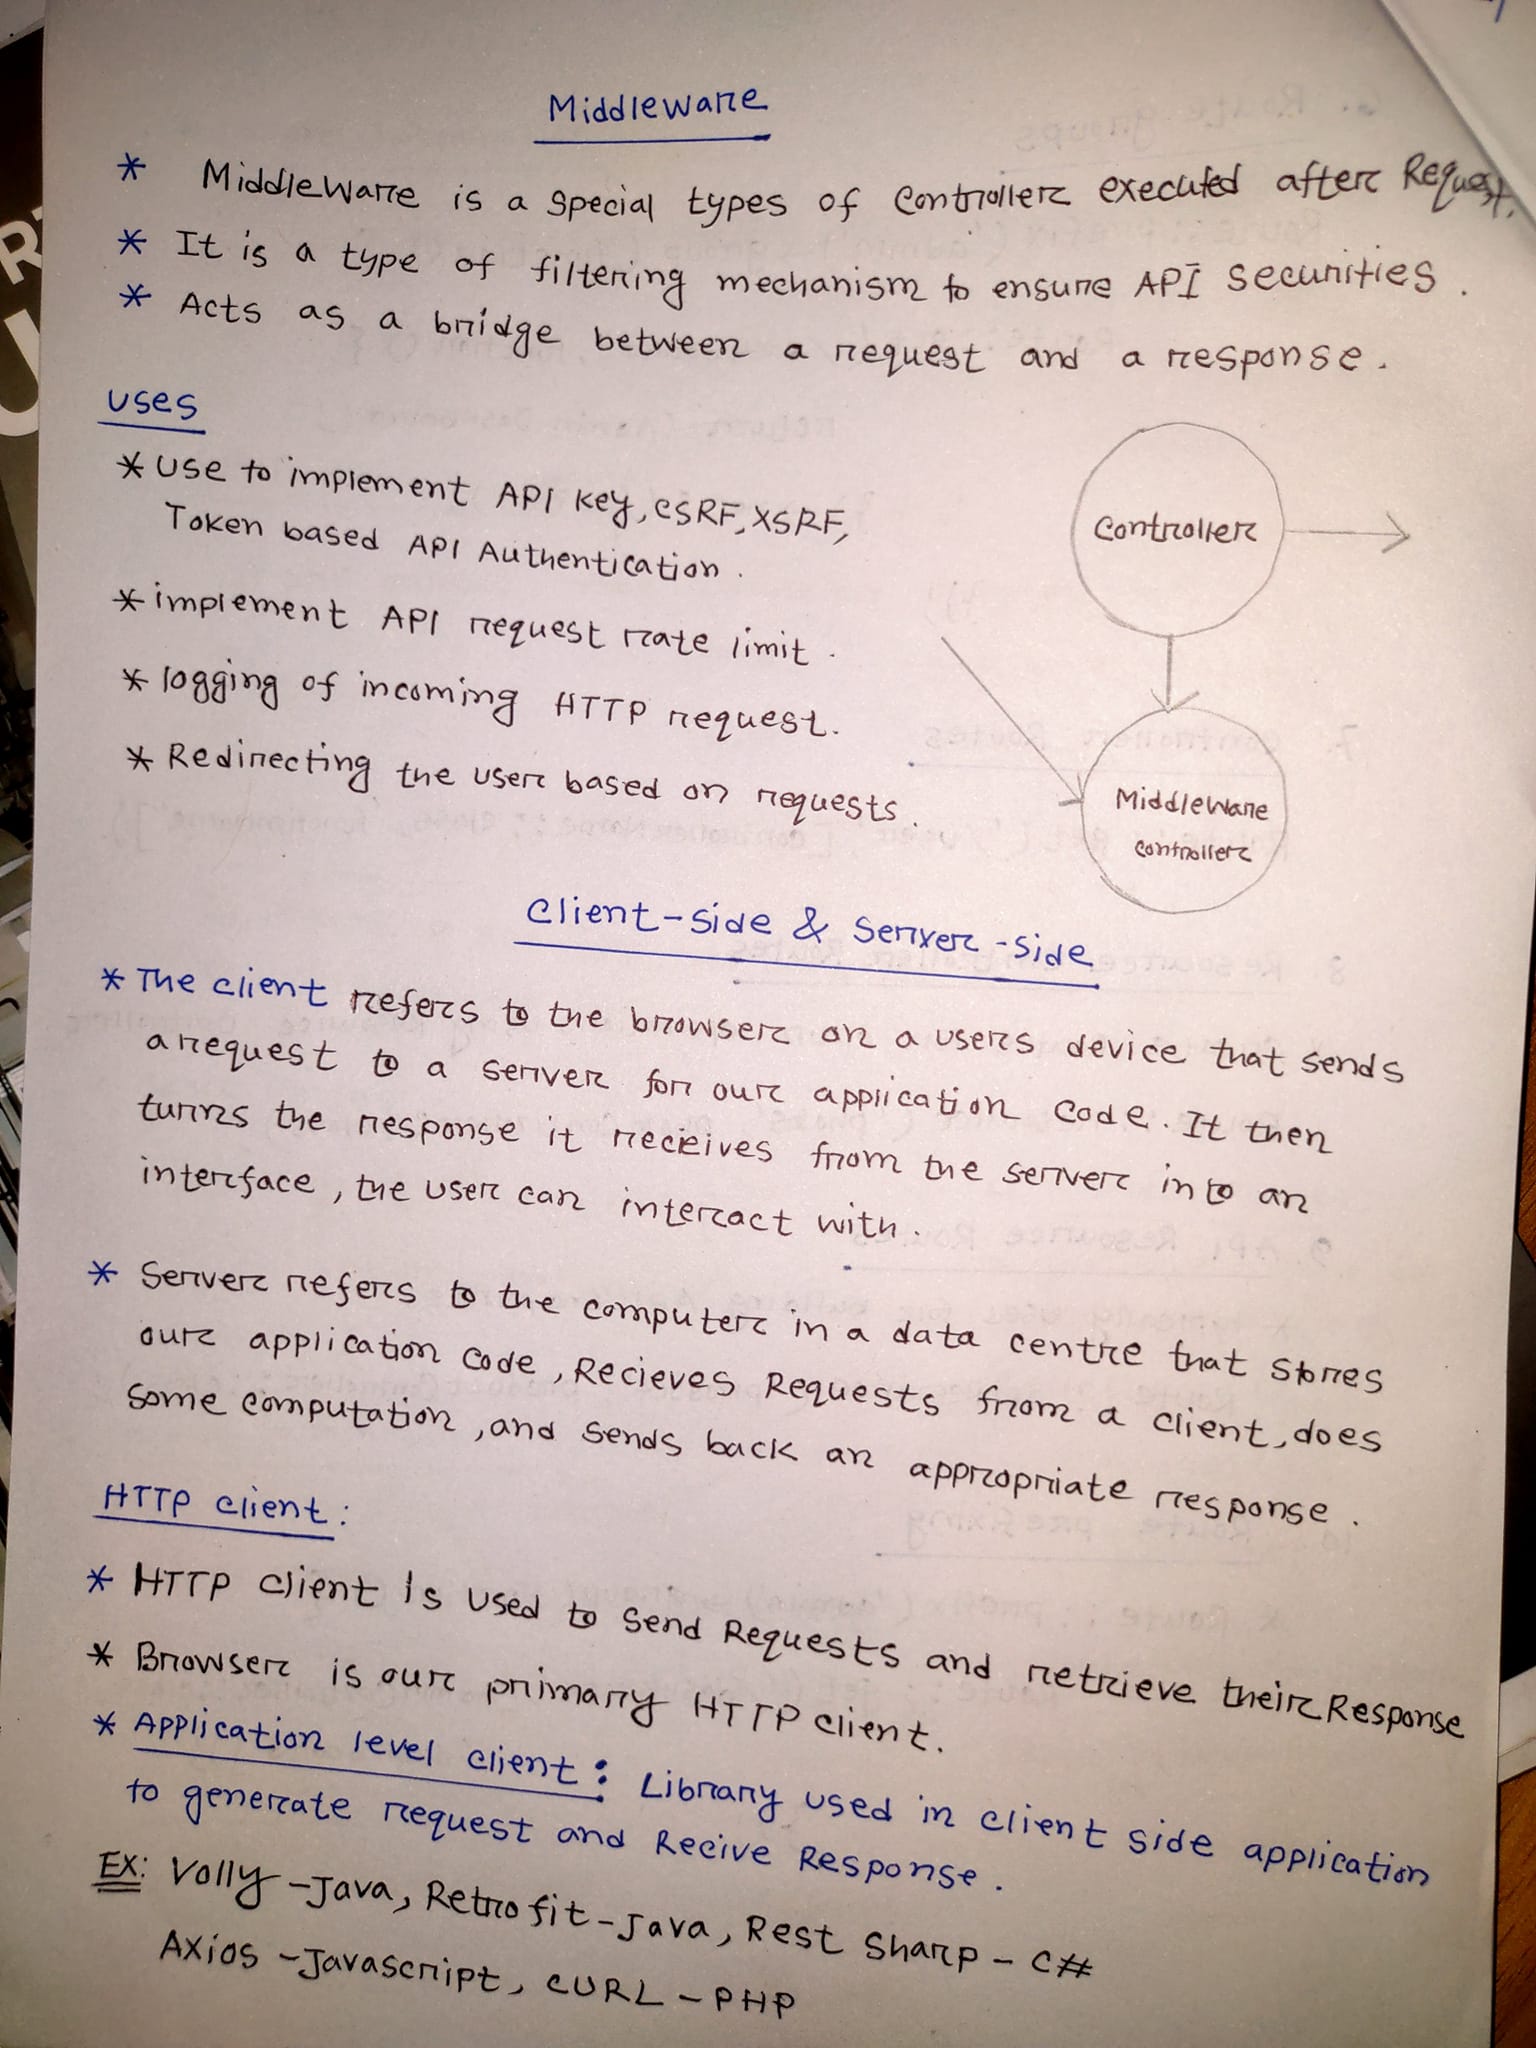 Middleware
* Middleware is a special types of controller executed after Request.
* It is a type of filtering mechanism to ensure API securities.
* Acts as a bridge between a request and a response.
uses
* use to implement API key, CSRF, XSRF,
Token based API Authentication.
* implement API request rate limit.
* logging of incoming HTTP request.
* Redirecting the user based on requests.
controller
Middleware
controller
client-side & server-side
* The client refers to the browser on a users device that sends
a request to a server for our application code. It then
turns the response it receives from the server into an
interface, the user can interact with.
* Server refers to the computer in a data centre that stores
our application code, Recieves Requests from a client, does
some computation, and sends back an appropriate response.
HTTP client:
* HTTP client is used to send Requests and retrieve their Response
* Browser is our primary HTTP client.
* Application level client: Library used in client side application
to generate request and Recive Response.
EX: Volly - Java, Retrofit - Java, Rest Sharp - C#
Axios - Javascript, CURL - PHP